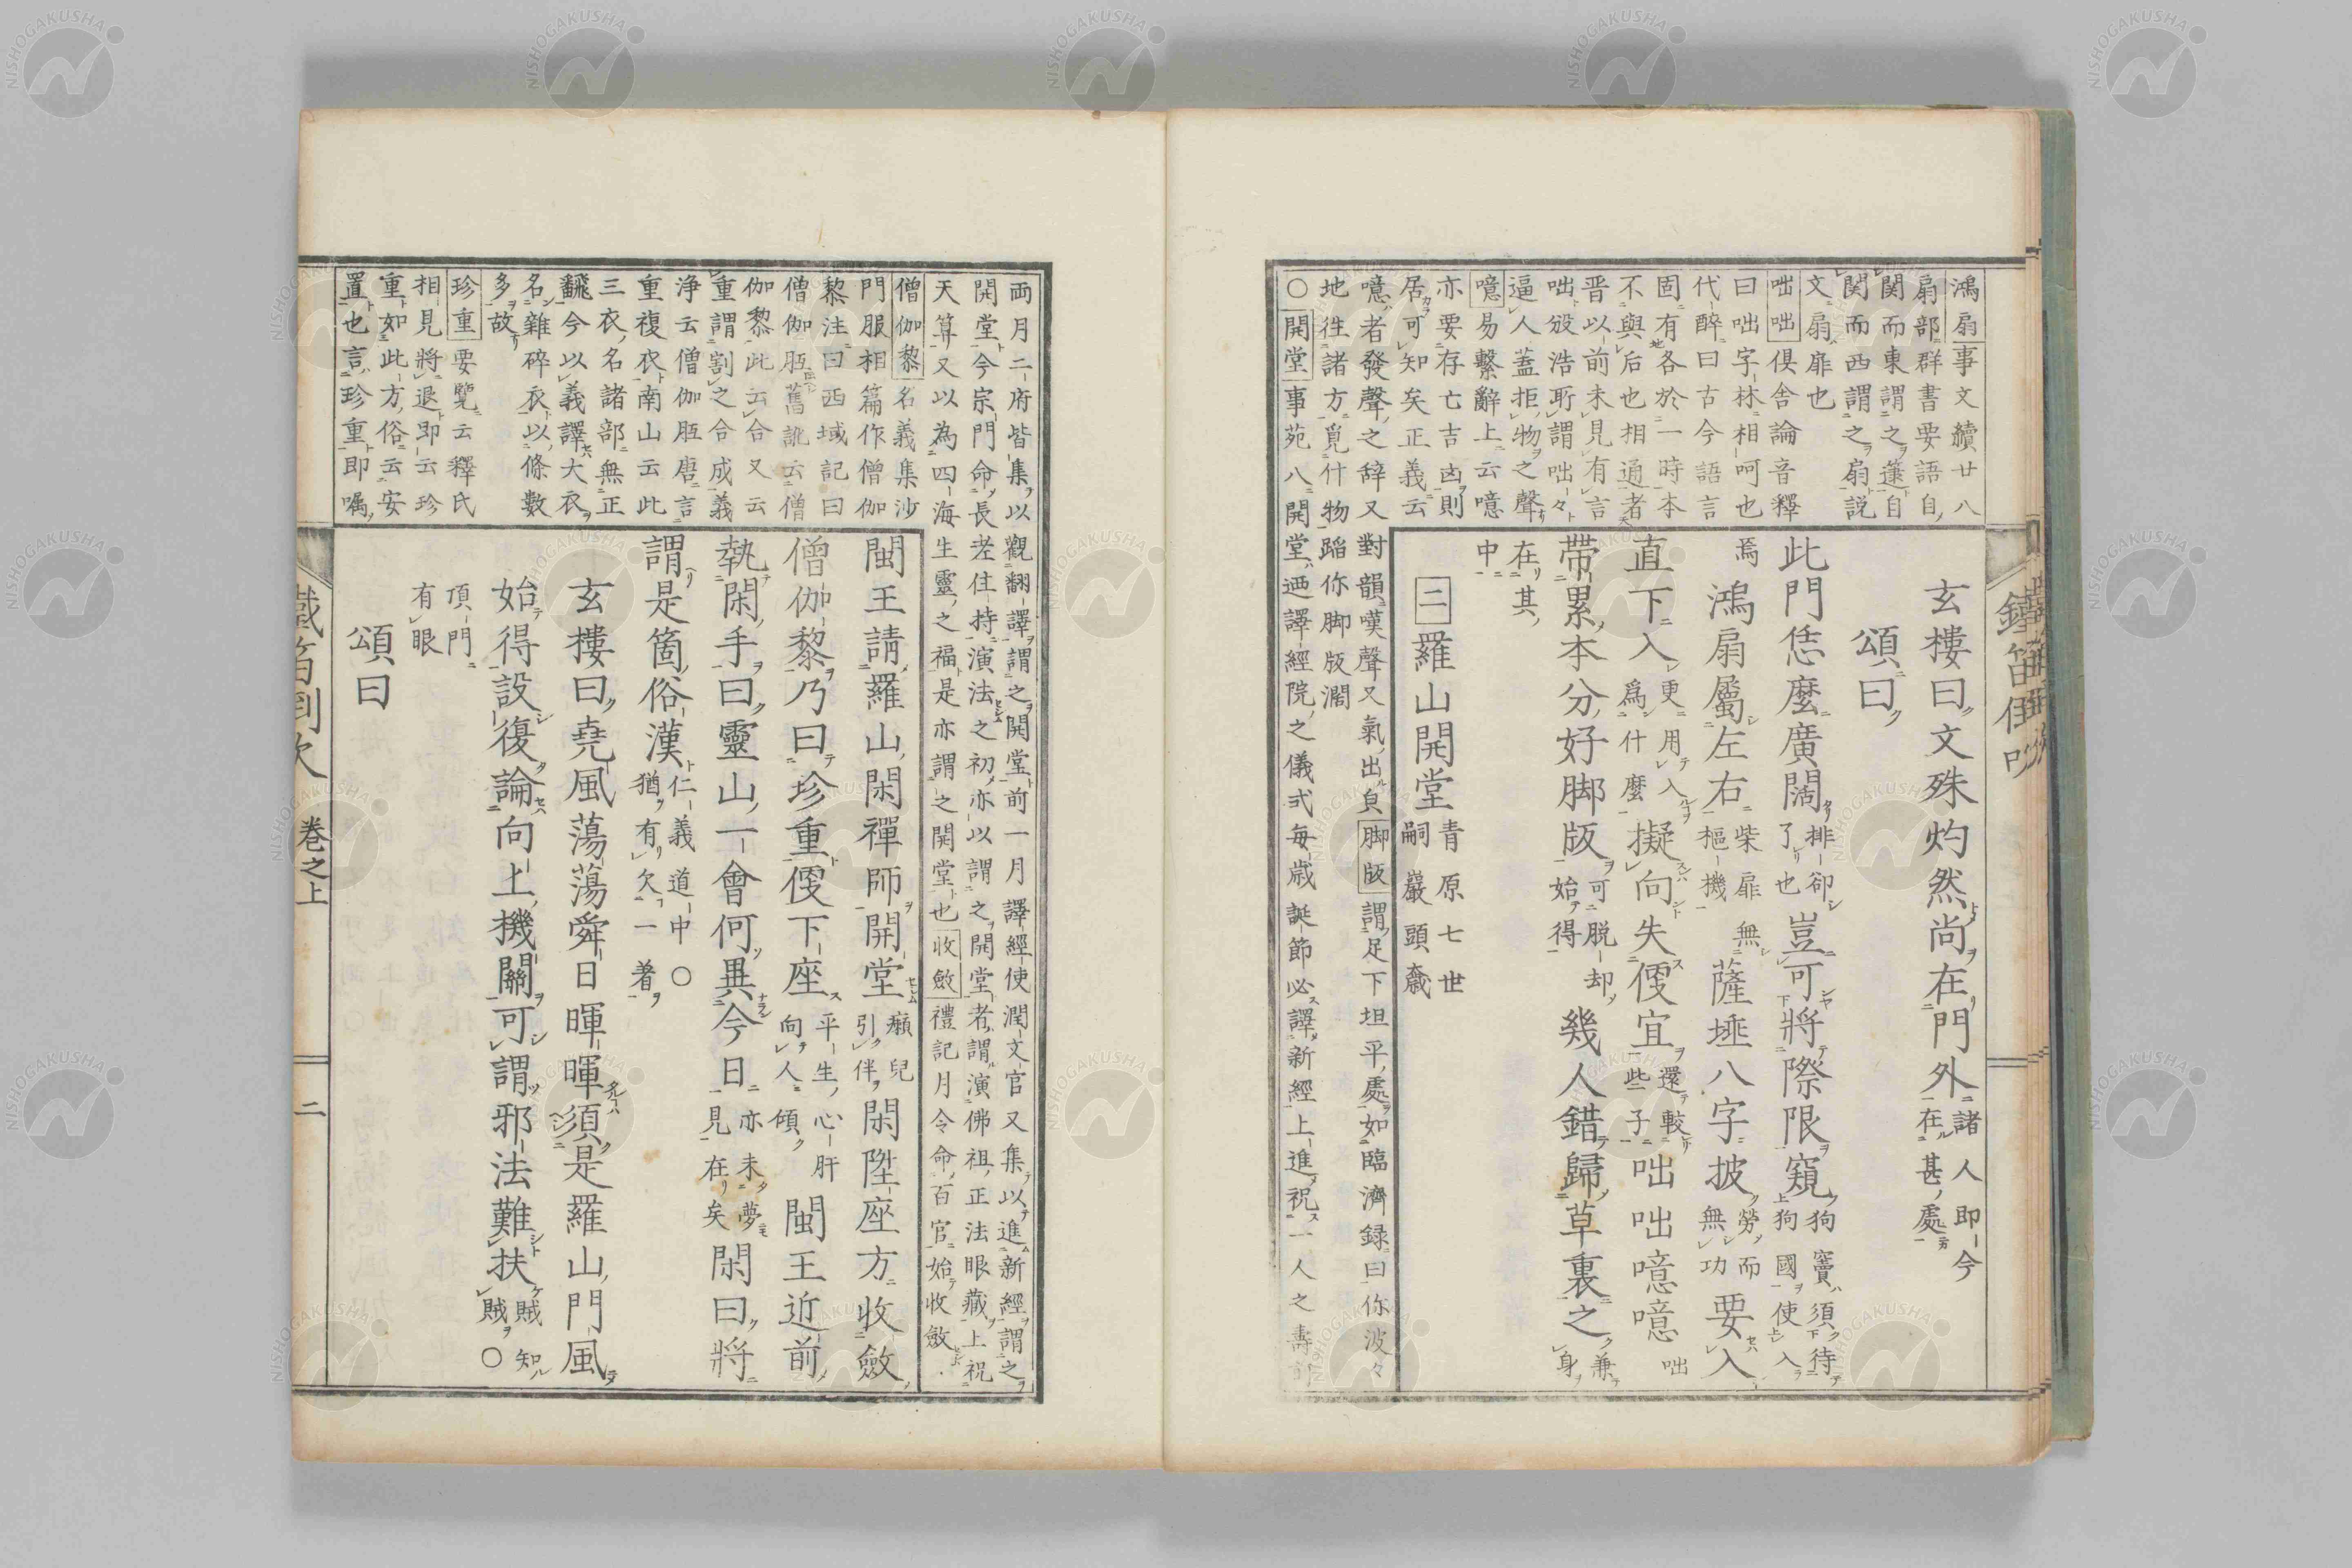 鴻扇事文續廿八
扇部群書要語自
関而東謂之箑自
関而西謂之扇説
文扇扉也
咄咄倶舎論音釋
曰咄字林相呵也
代醉曰古今語言
固有各於一時本
不與后也相通者
晋以前未見有言
咄殷浩所謂咄々
逼人蓋拒物之聲
噫易繋辭上云噫
亦要存亡吉凶則
居可知矣正義云
噫者發聲之辞又對韻嘆聲又氣出皃脚版謂足下坦平處如臨濟録曰你波々
地徃諸方覓什物踏你脚版濶
○開堂事苑八開堂廼譯經院之儀式毎歳誕節必譯新經上進祝一人之壽前
玄樓曰文殊灼然尚在門外諸人即今在甚處
頌曰
此門恁麼廣闊排卻了也豈可將際限窺狗竇須待狗國使入
焉鴻扇屬左右柴扉無樞機無薩埵八字披勞而無功要入
直下入更用入爲什麼擬向失便宜還較些子咄咄噫噫咄
帶累本分好脚版可脱却始得幾人錯歸草裏之兼身
在其中
二羅山開堂青原七世嗣巖頭奯
鐵笛倒吹
両月二府皆集以觀翻譯謂之開堂前一月譯經使潤文官又集以進新經謂之
開堂今宗門命長老住持演法之初亦以謂之開堂者謂演佛祖正法眼藏上祝
天算又以為四海生靈之福是亦謂之開堂也收斂禮記月令命百官始收斂
僧伽黎名義集沙
門服相篇作僧伽
黎注曰西域記曰
僧伽胝舊訛云僧
伽黎此云合又云
重謂割之合成義
浄云僧伽胝唐言
重複衣南山云此
三衣名諸部無正
翻今以義譯大衣
名雜碎衣以條數
多故
珍重要覽云釋氏
相見將退即云珍
重如此方俗云安
置也言珍重即嘱
閩王請羅山閑禪師開堂癩兒引伴閑陞座方收斂
僧伽黎乃曰珍重便下座平生心肝向人傾閩王近前
執閑手曰靈山一會何異今日亦未夢見在矣閑曰將
謂是箇俗漢仁義道中○猶有欠一着
玄樓曰堯風蕩蕩舜日暉暉須是羅山門風
始得設復論向上機關可謂邪法難扶賊知賊○
頂門有眼
頌曰
鐵笛倒吹 巻之上 二